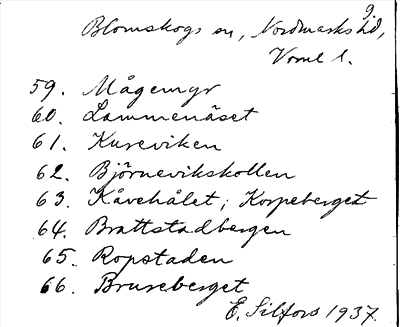 9.
Blomskogs sn, Nordmarks hd,
Vrml l.
59. Mågemyr
60. Lammenäset
61. Kureviken
62. Björnevikskollen
63. Kåvehålet; Korpeberget
64. Brattstadbergen
65. Ropstaden
66. Bruseberget
E. Silfors 1937.